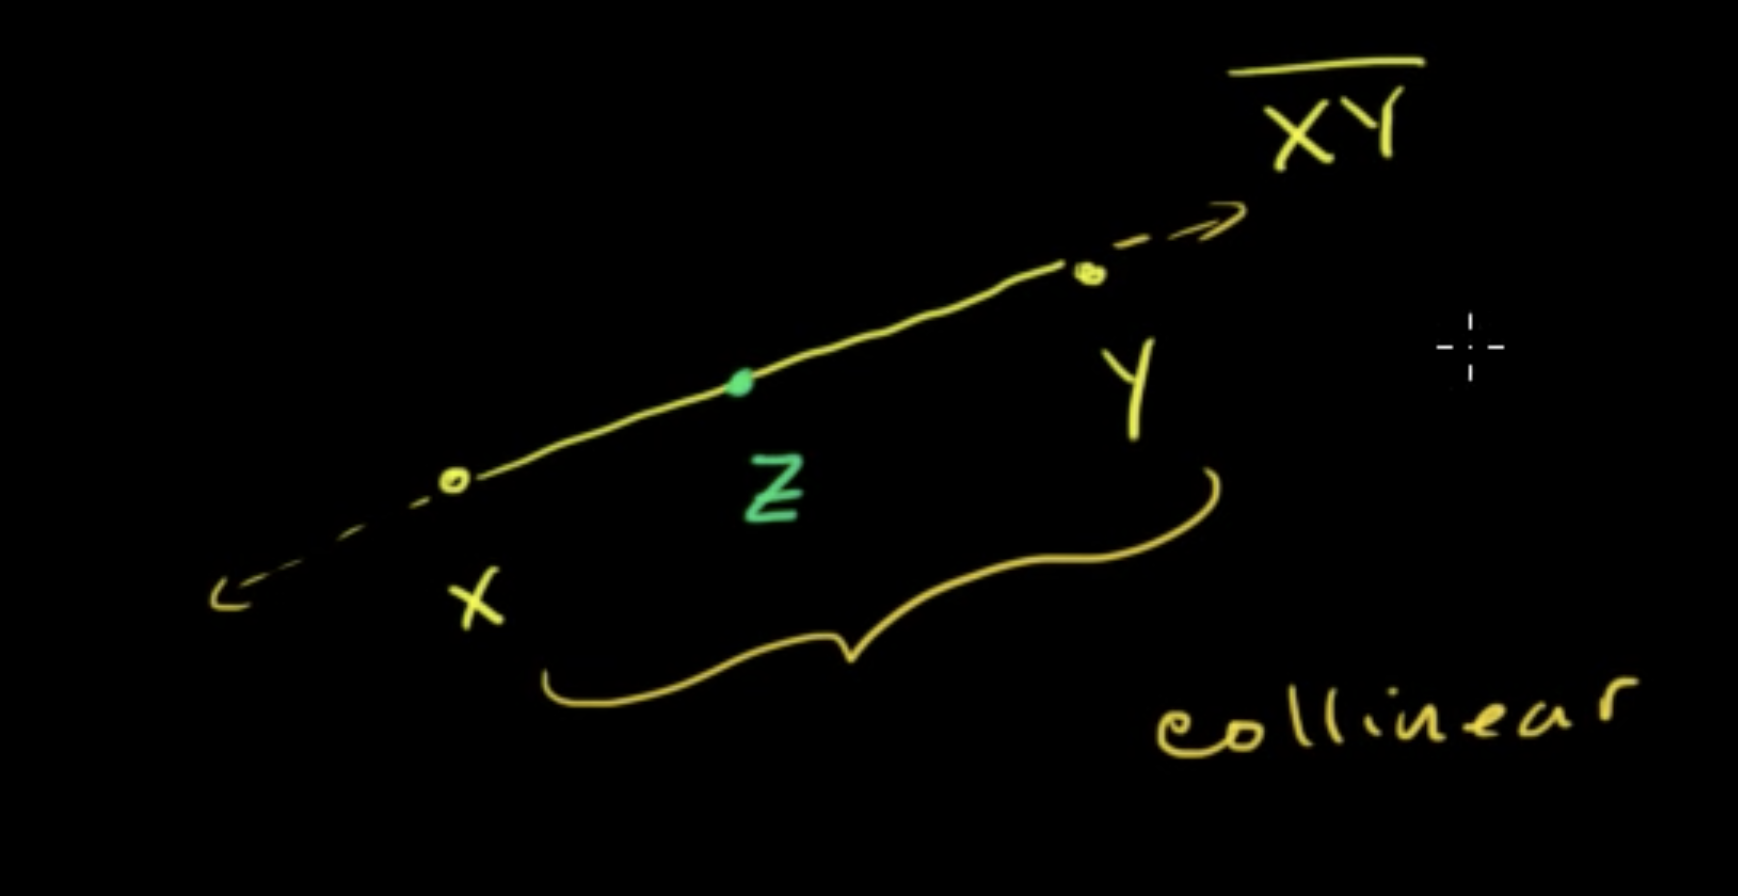 XY
Y
Z
X
collinear